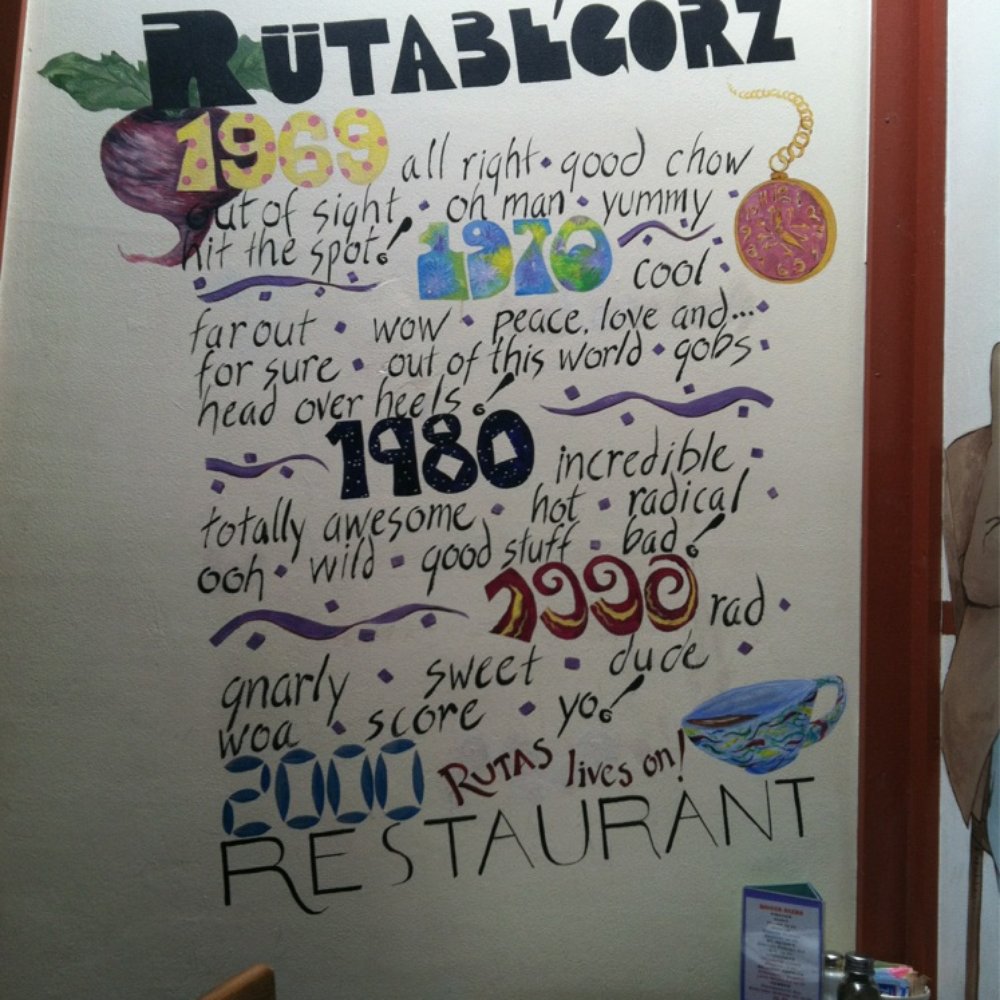 RÜTABÉGORZ
1969 all right • good chow
out of sight • oh man • yummy •
hit the spot! 1970 cool •
far out • wow • peace, love and...•
for sure • out of this world • gobs •
head over heels!
1980 incredible •
totally awesome • hot • radical •
ooh • wild • good stuff • bad!
1990 rad •
gnarly • sweet • dude •
woa • score • yo!
2000 RUTAS lives on!
RESTAURANT